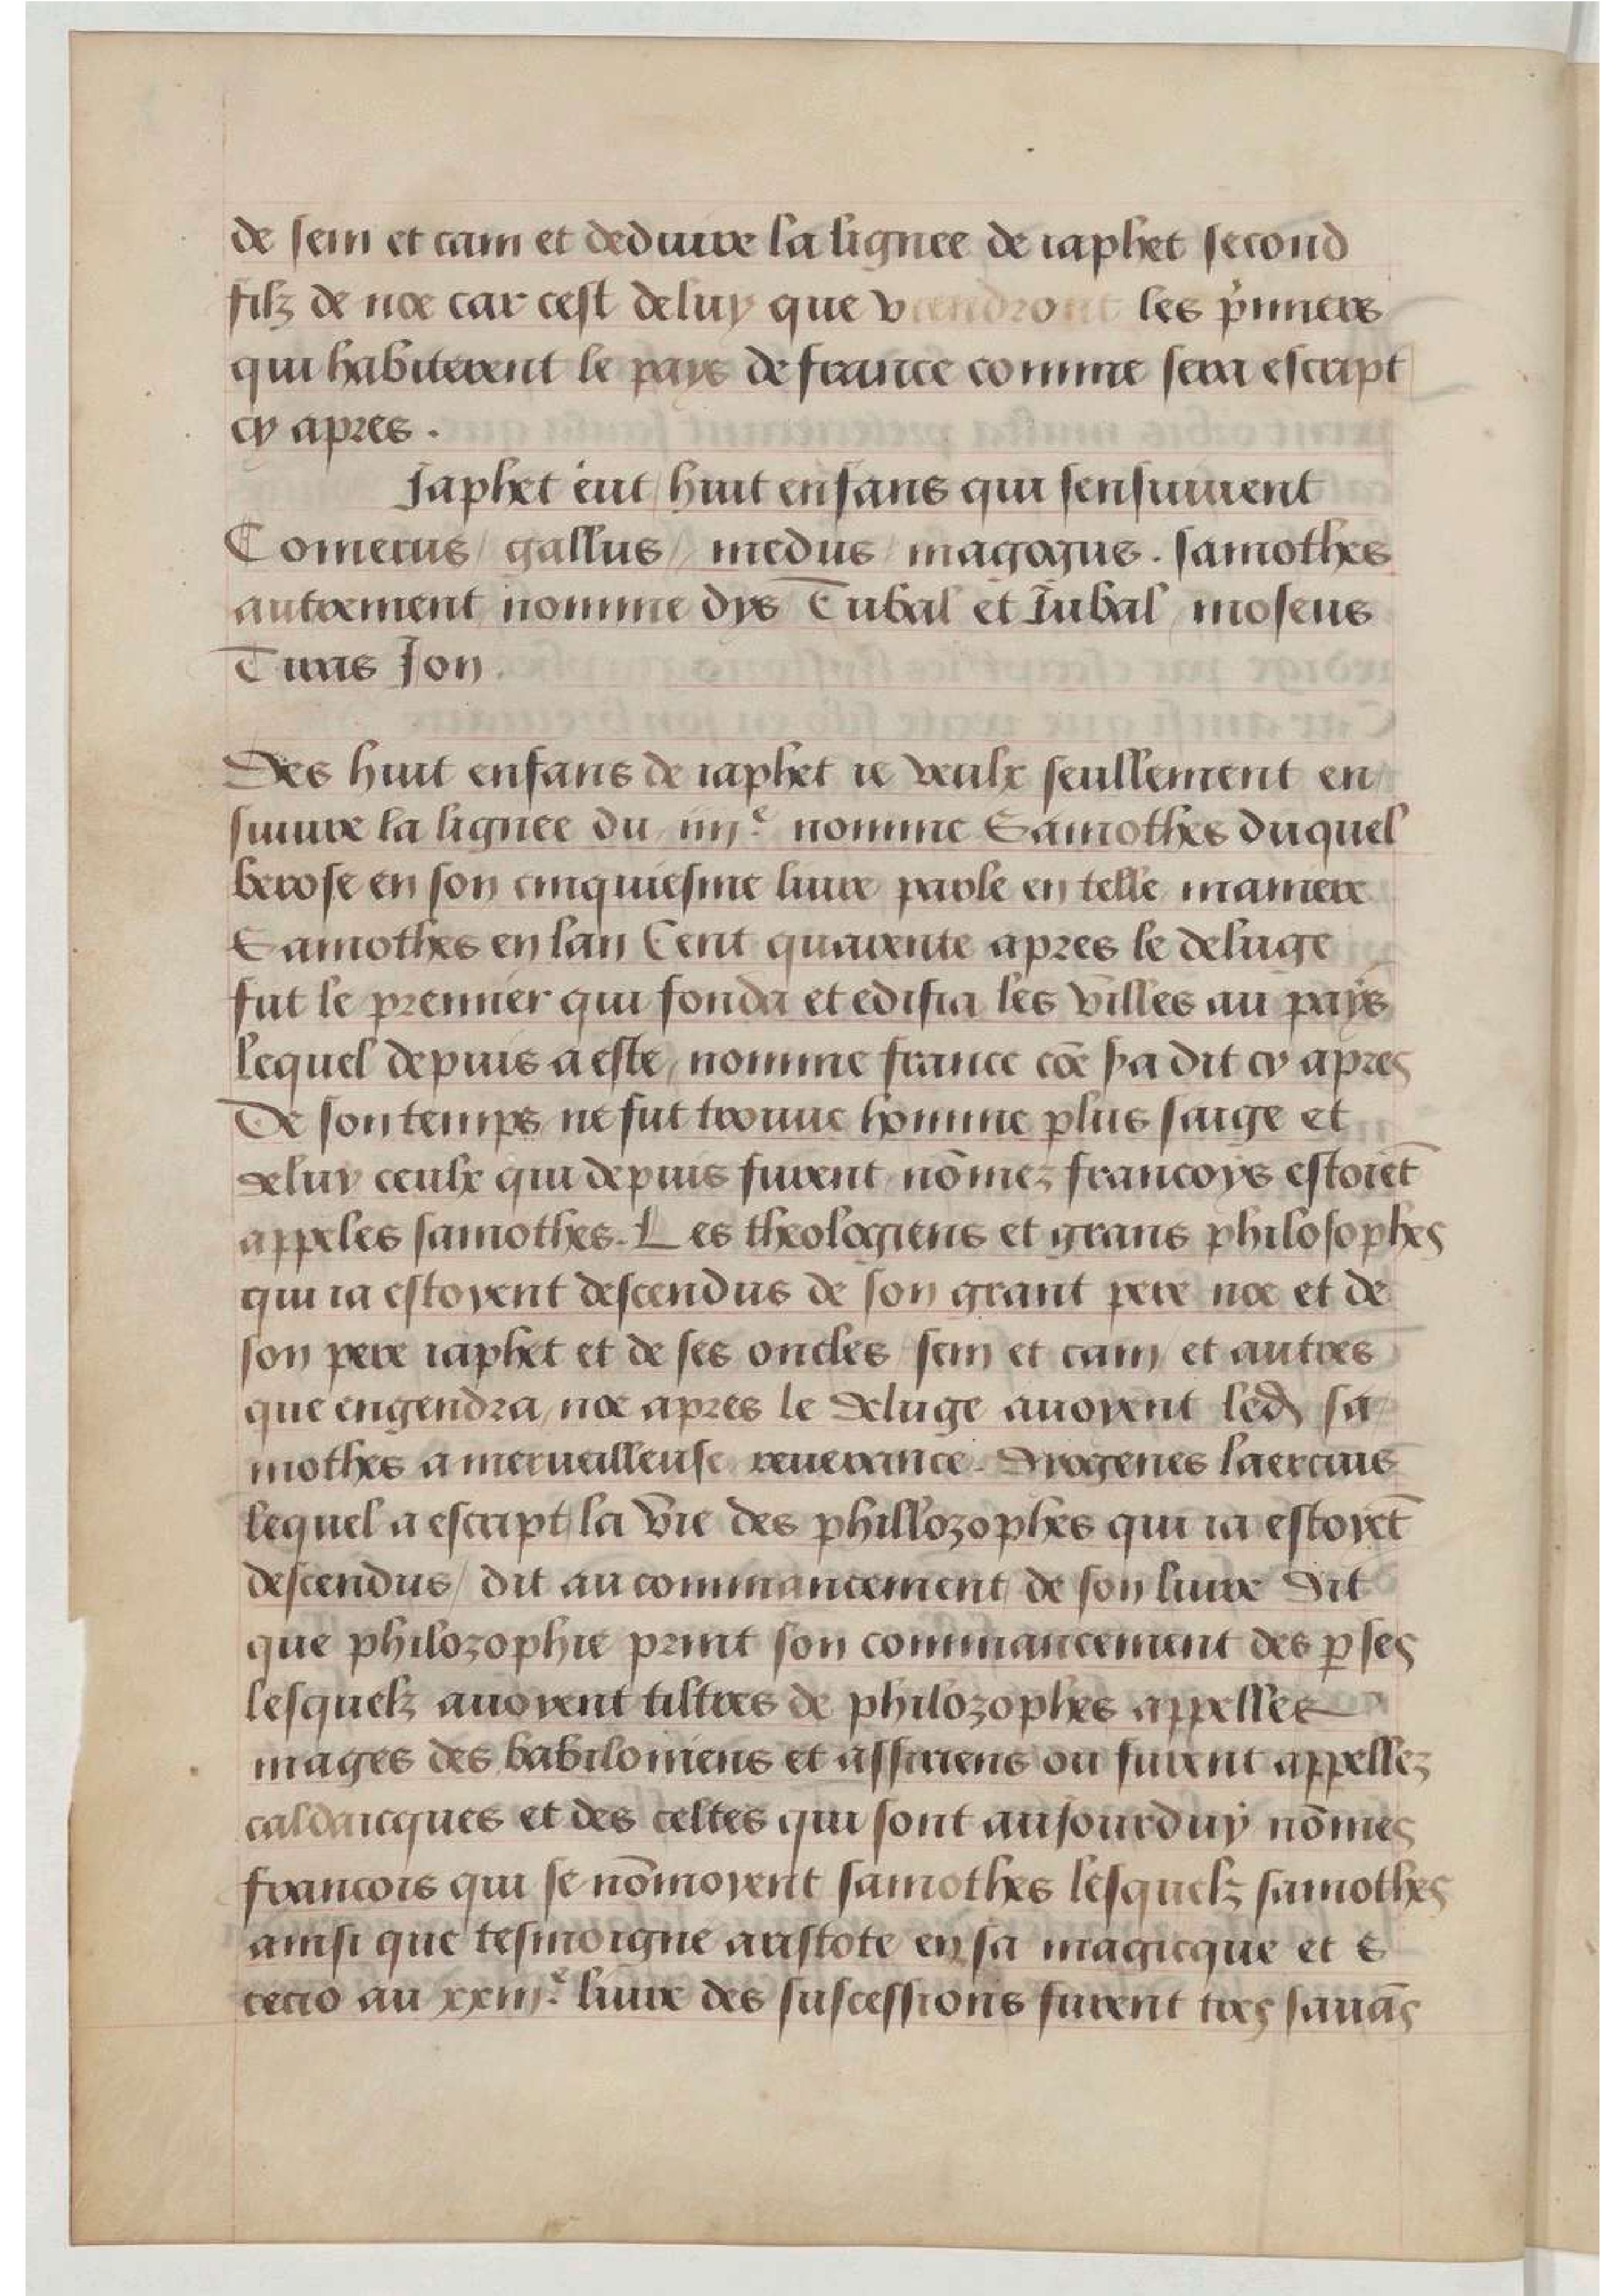 de sem et cam et deduire la lignee de iaphet second
filz de noe car cest de luy que viendront les p̃miers
qui habiterent le pays de france comme sera escript
cy apres .
Japhet eut / huit enfans qui sensuiuent
Comerus / gallus / medus / magogus . samothes
autrement nomme dys Tubal et Jubal / moseus
Tiras Jon .
Des huit enfans de iaphet ie veulx seullement en
suiure la lignee du iiijᵉ. nomme Samothes duquel
berose en son cinquiesme liure parle en telle maniere
Samothes en lan Cent quarente apres le deluge
fut le premier qui fonda et edifia les villes au pays
lequel depuis a este / nomme france cōe sʼa dit cy apres
De son temps ne fut trouue homme plus saige et
de luy ceulx qui depuis furent nōmez francoys estoiēt
appeles samothes. Les theologiens et grans philosophes
qui ia estoyent descendus de son grant pere noe et de
son pere iaphet et de ses oncles / sem et cam / et autres
que engendra / noe apres le deluge auoyent led sa
mothes a merueilleuse reuerance . Diogenes laercius
lequel a escript la vie des phillozophes qui ia estoyēt
descendus / dit au commancement de son liure dit
que philozophie print son commancement des p̱ses
lesquelz auoyent tiltres de philozophes appelles
mages des babiloniens et assiriens ou furent appellez
caldaicques et des celtes qui sont auiourduy nōmes
francois qui se nōmoyent samothes lesquelz samothes
ainsi que tesmoigne aristote en sa magicque et s
cecio au xxiijᵉ. liure des suscessions furent tres sauās